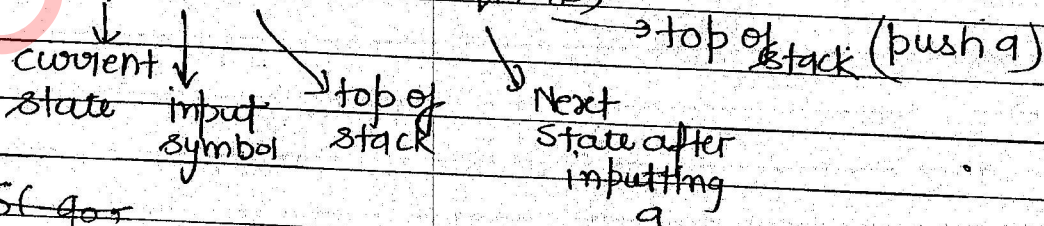 → top of stack (push a)
current state
input symbol
top of stack
Next state after inputting a